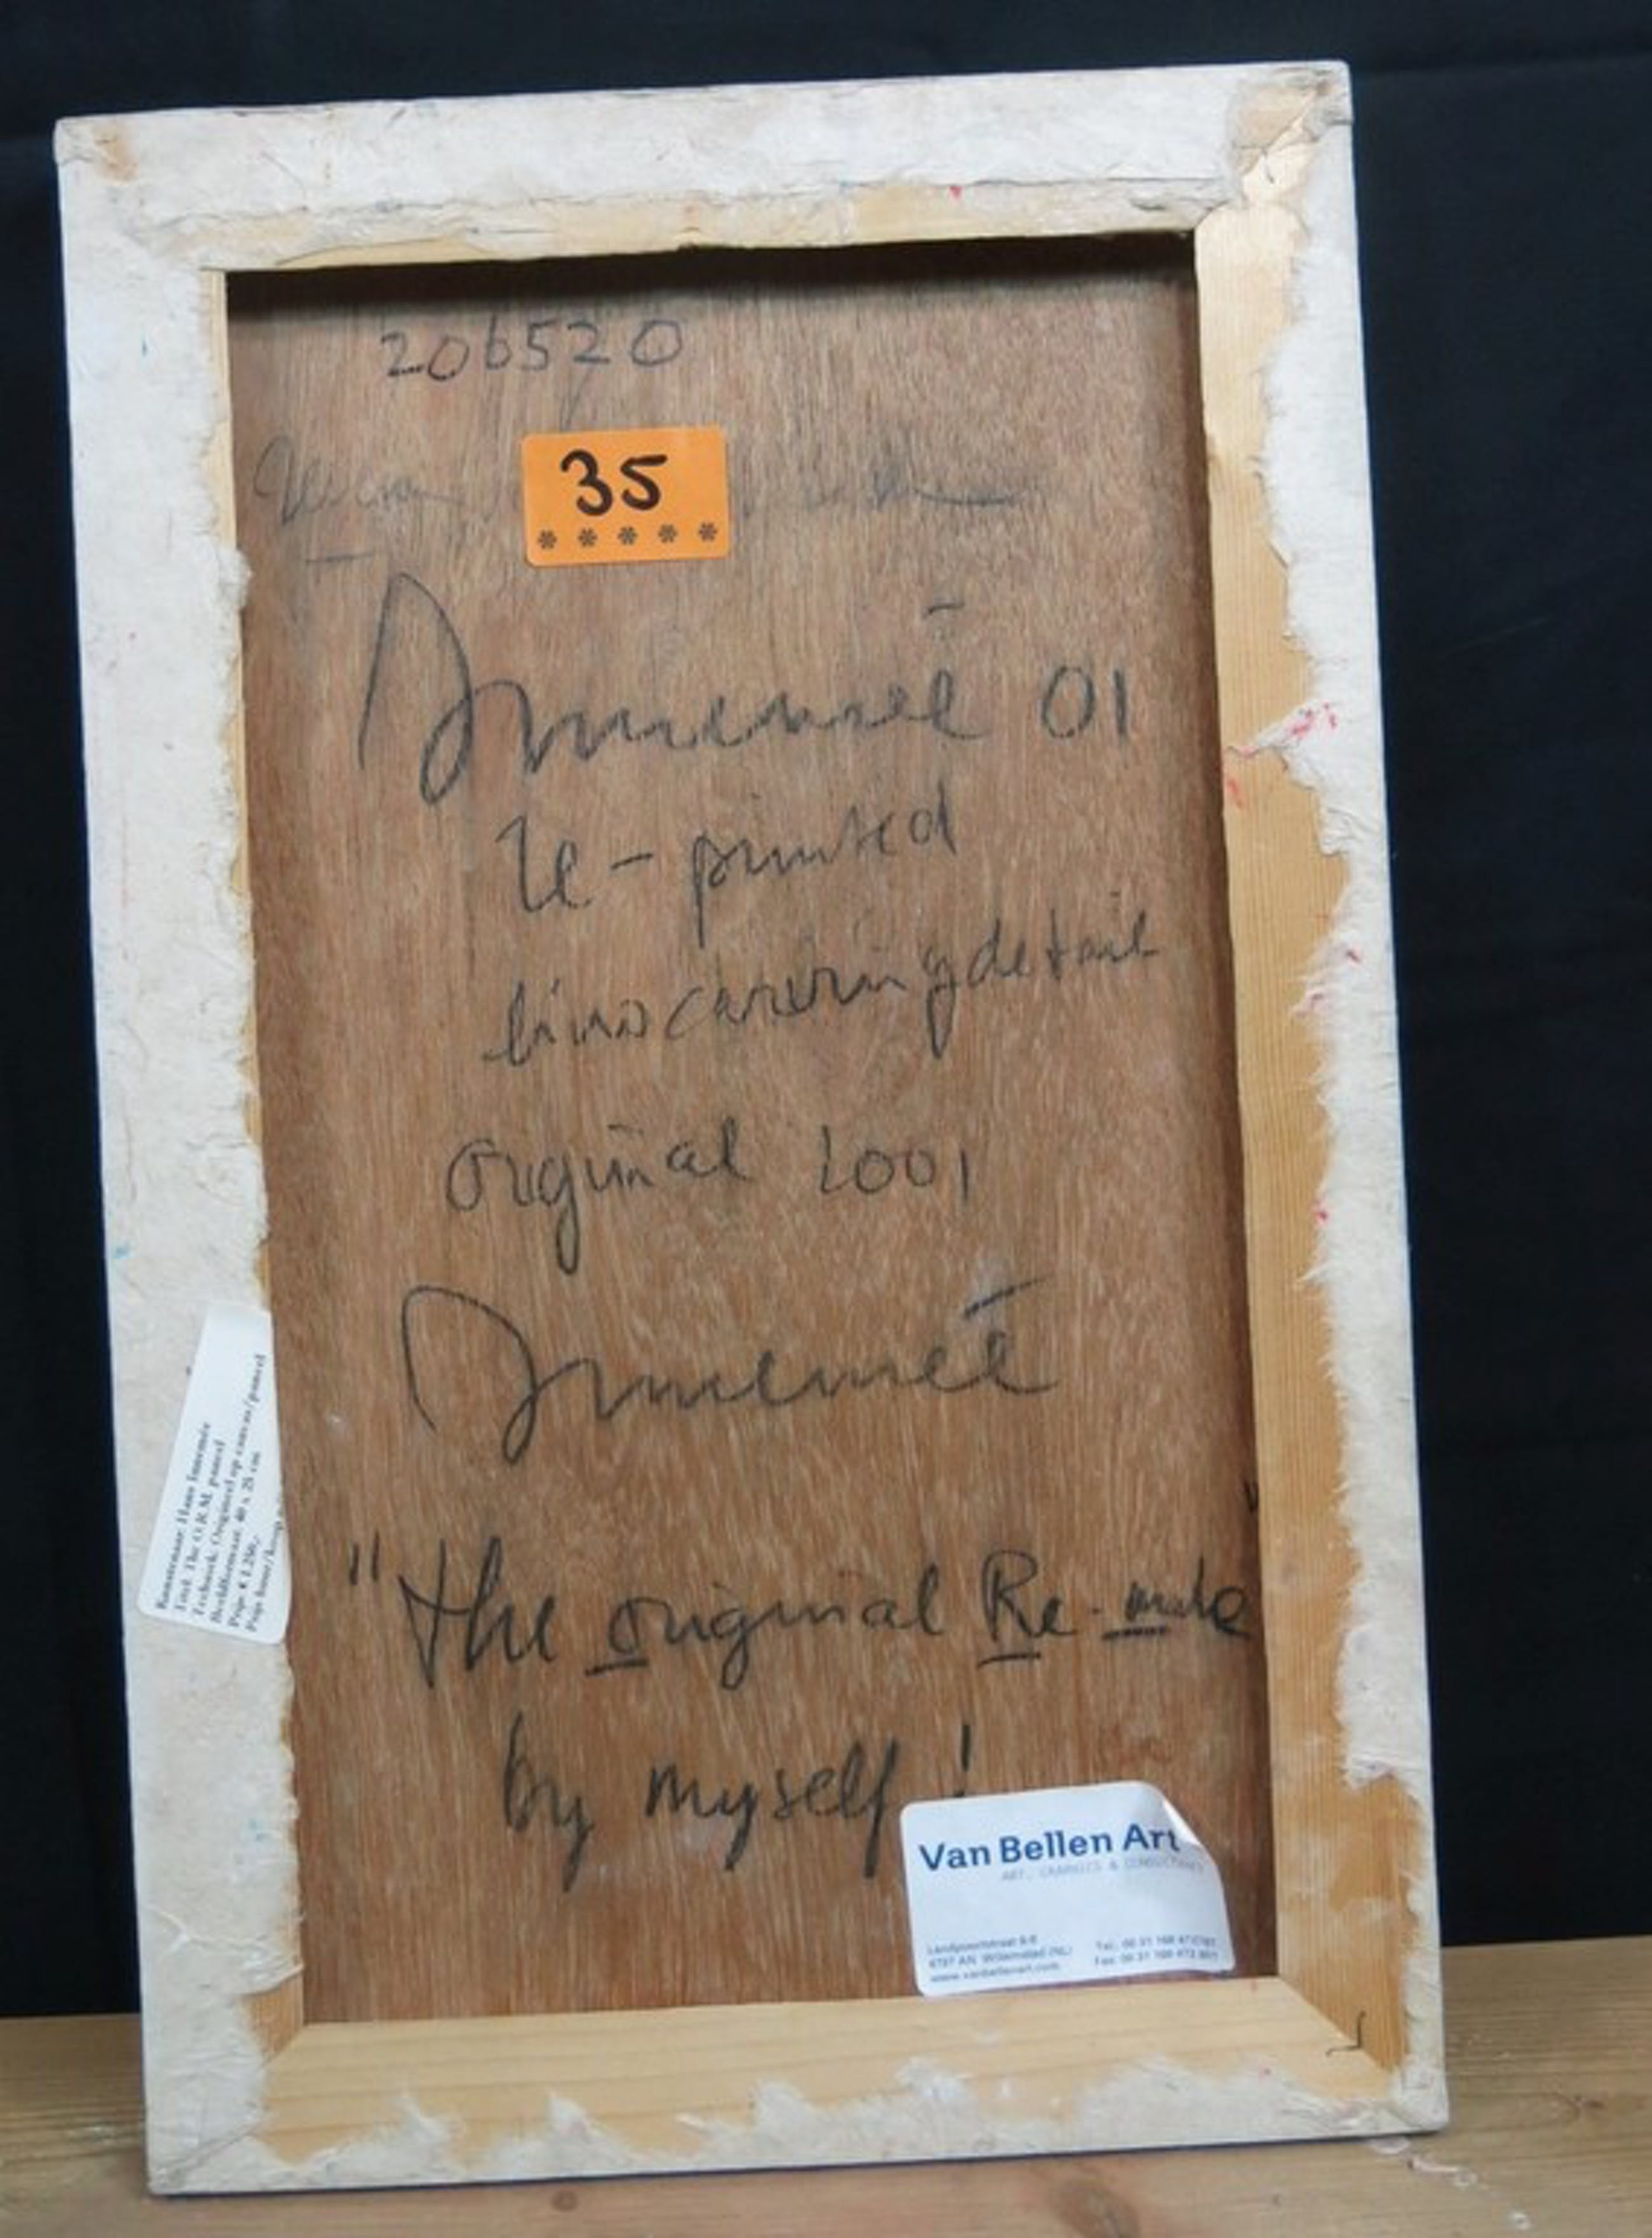 206520
35
Innemeé 01
re-printed
lino carving detail
original 2001
Innemeé
"the original Re-make"
by myself!
Kunstenaar: Hans Innemée
Titel: The O.R.M. paneel
Techniek: Origineel op canvas/paneel
Beeldformaat: 40 x 25 cm
Prijs: € 1.250,-
Van Bellen Art
ART, GRAPHICS &
Landpoortstraat
4797 AN Willemstad (NL)
www.vanbellenart.com
Tel: 00 31 168
Fax: 00 31 168